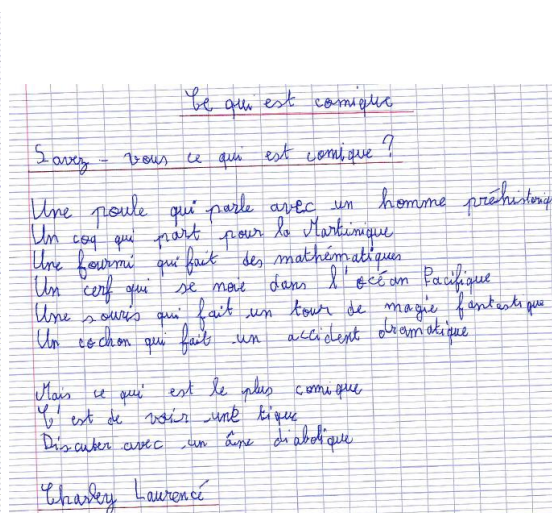 Ce qui est comique
Savez-vous ce qui est comique ?
Une poule qui parle avec un homme préhistoriq
Un coq qui part pour la Martinique
Une fourmi qui fait des mathématiques
Un cerf qui se noie dans l'océan Pacifique
Une souris qui fait un tour de magie fantastique
Un cochon qui fait un accident dramatique
Mais ce qui est le plus comique
C'est de voir une tique
Discuter avec un âne diabolique
Charley Laurencé